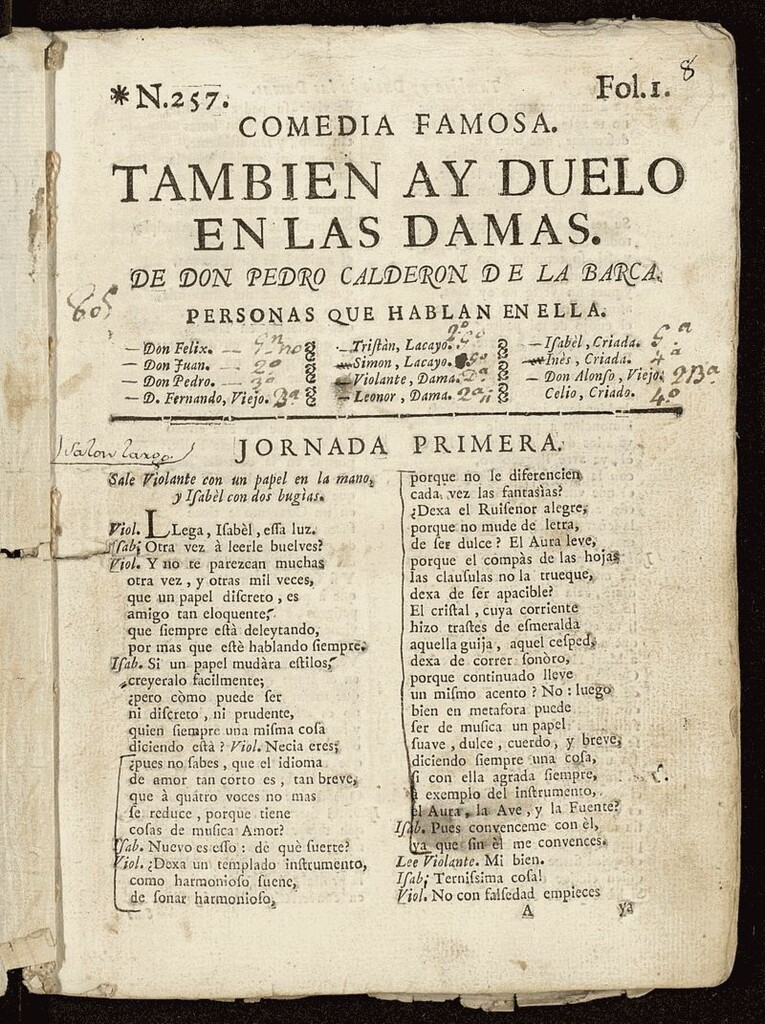 8
*N.257.
Fol.1.
COMEDIA FAMOSA.
TAMBIEN AY DUELO
EN LAS DAMAS.
DE DON PEDRO CALDERON DE LA BARCA.
605
PERSONAS QUE HABLAN EN ELLA.
— Don Felix. —
— Don Juan. — 2º
— Don Pedro. — 3º
— D. Fernando, Viejo. Bª
— Tristàn, Lacayo.
— Simon, Lacayo.
— Violante, Dama.
— Leonor, Dama. 2ª
— Isabèl, Criada.
— Inès, Criada. 4ª
— Don Alonso, Viejo.
Celio, Criado. 4º
Salon largo.
JORNADA PRIMERA.
Sale Violante con un papel en la mano,
y Isabèl con dos bugias.
Viol. LLega, Isabèl, eſſa luz.
Isab; Otra vez à leerle buelves?
Viol. Y no te parezcan muchas
otra vez, y otras mil veces,
que un papel diſcreto, es
amigo tan eloquente,
que ſiempre eſtà deleytando,
por mas que eſtè hablando ſiempre.
Iſab. Si un papel mudàra eſtilos,
creyeralo facilmente;
¿pero còmo puede ſer
ni diſcreto, ni prudente,
quien ſiempre una miſma coſa
diciendo eſtà? Viol. Necia eres;
¿pues no ſabes, que el idioma
de amor tan corto es, tan breve,
que à quàtro voces no mas
ſe reduce, porque tiene
coſas de muſica Amor?
Iſab. Nuevo es eſſo: de què ſuerte?
Viol. ¿Dexa un templado inſtrumento,
como harmonioſo ſuene,
de ſonar harmonioſo,
porque no le diferencien
cada vez las fantasìas?
¿Dexa el Ruiſeñor alegre,
porque no mude de letra,
de ſer dulce? El Aura leve,
porque el compàs de las hojas
las clauſulas no la trueque,
dexa de ſer apacible?
El criſtal, cuya corriente
hizo traſtes de eſmeralda
aquella guija, aquel ceſped,
dexa de correr ſonòro,
porque continuado lleve
un miſmo acento? No: luego
bien en metafora puede
ſer de muſica un papel
ſuave, dulce, cuerdo, y breve,
diciendo ſiempre una coſa,
ſi con ella agrada ſiempre,
à exemplo del inſtrumento,
el Aura, la Ave, y la Fuente?
Iſab. Pues convenceme con èl,
ya que ſin èl me convences.
Lee Violante. Mi bien.
Iſab; Terniſsima coſa!
Viol. No con falſedad empieces
A
ya